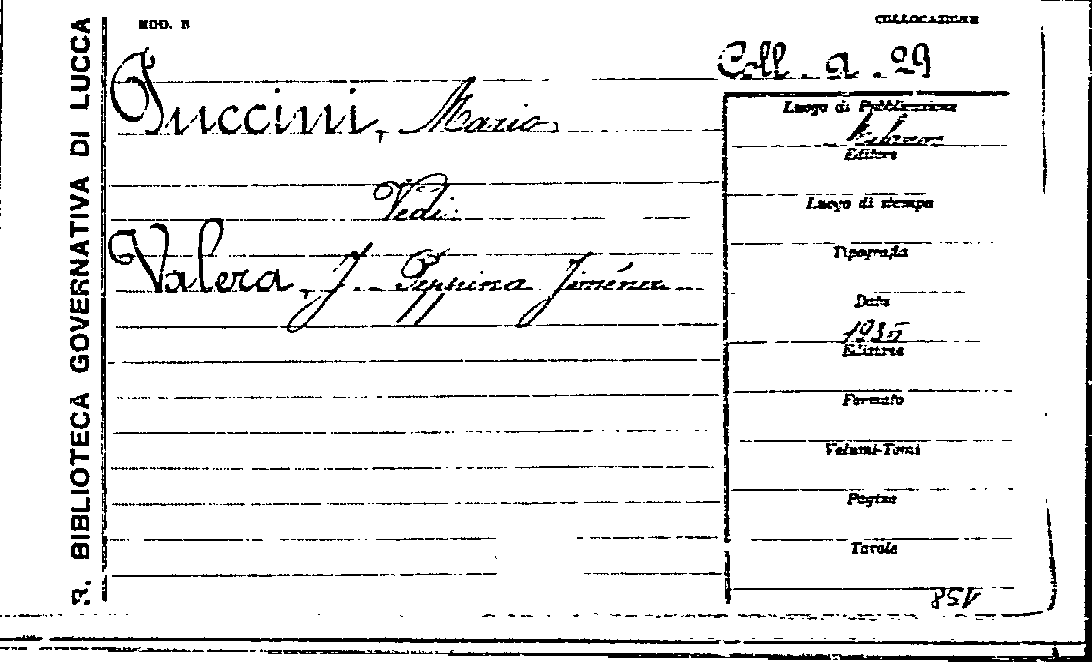 R. BIBLIOTECA GOVERNATIVA DI LUCCA
MOD. B
COLLOCAZIONE
Coll. a. 29
Puccini, Mario
Vedi:
Valera, J. - Peppina Jiménez
Luogo di Pubblicazione
Milano
Editore
Luogo di stampa
Tipografia
Data
1935
Edizione
Formato
Volumi-Tomi
Pagine
Tavole